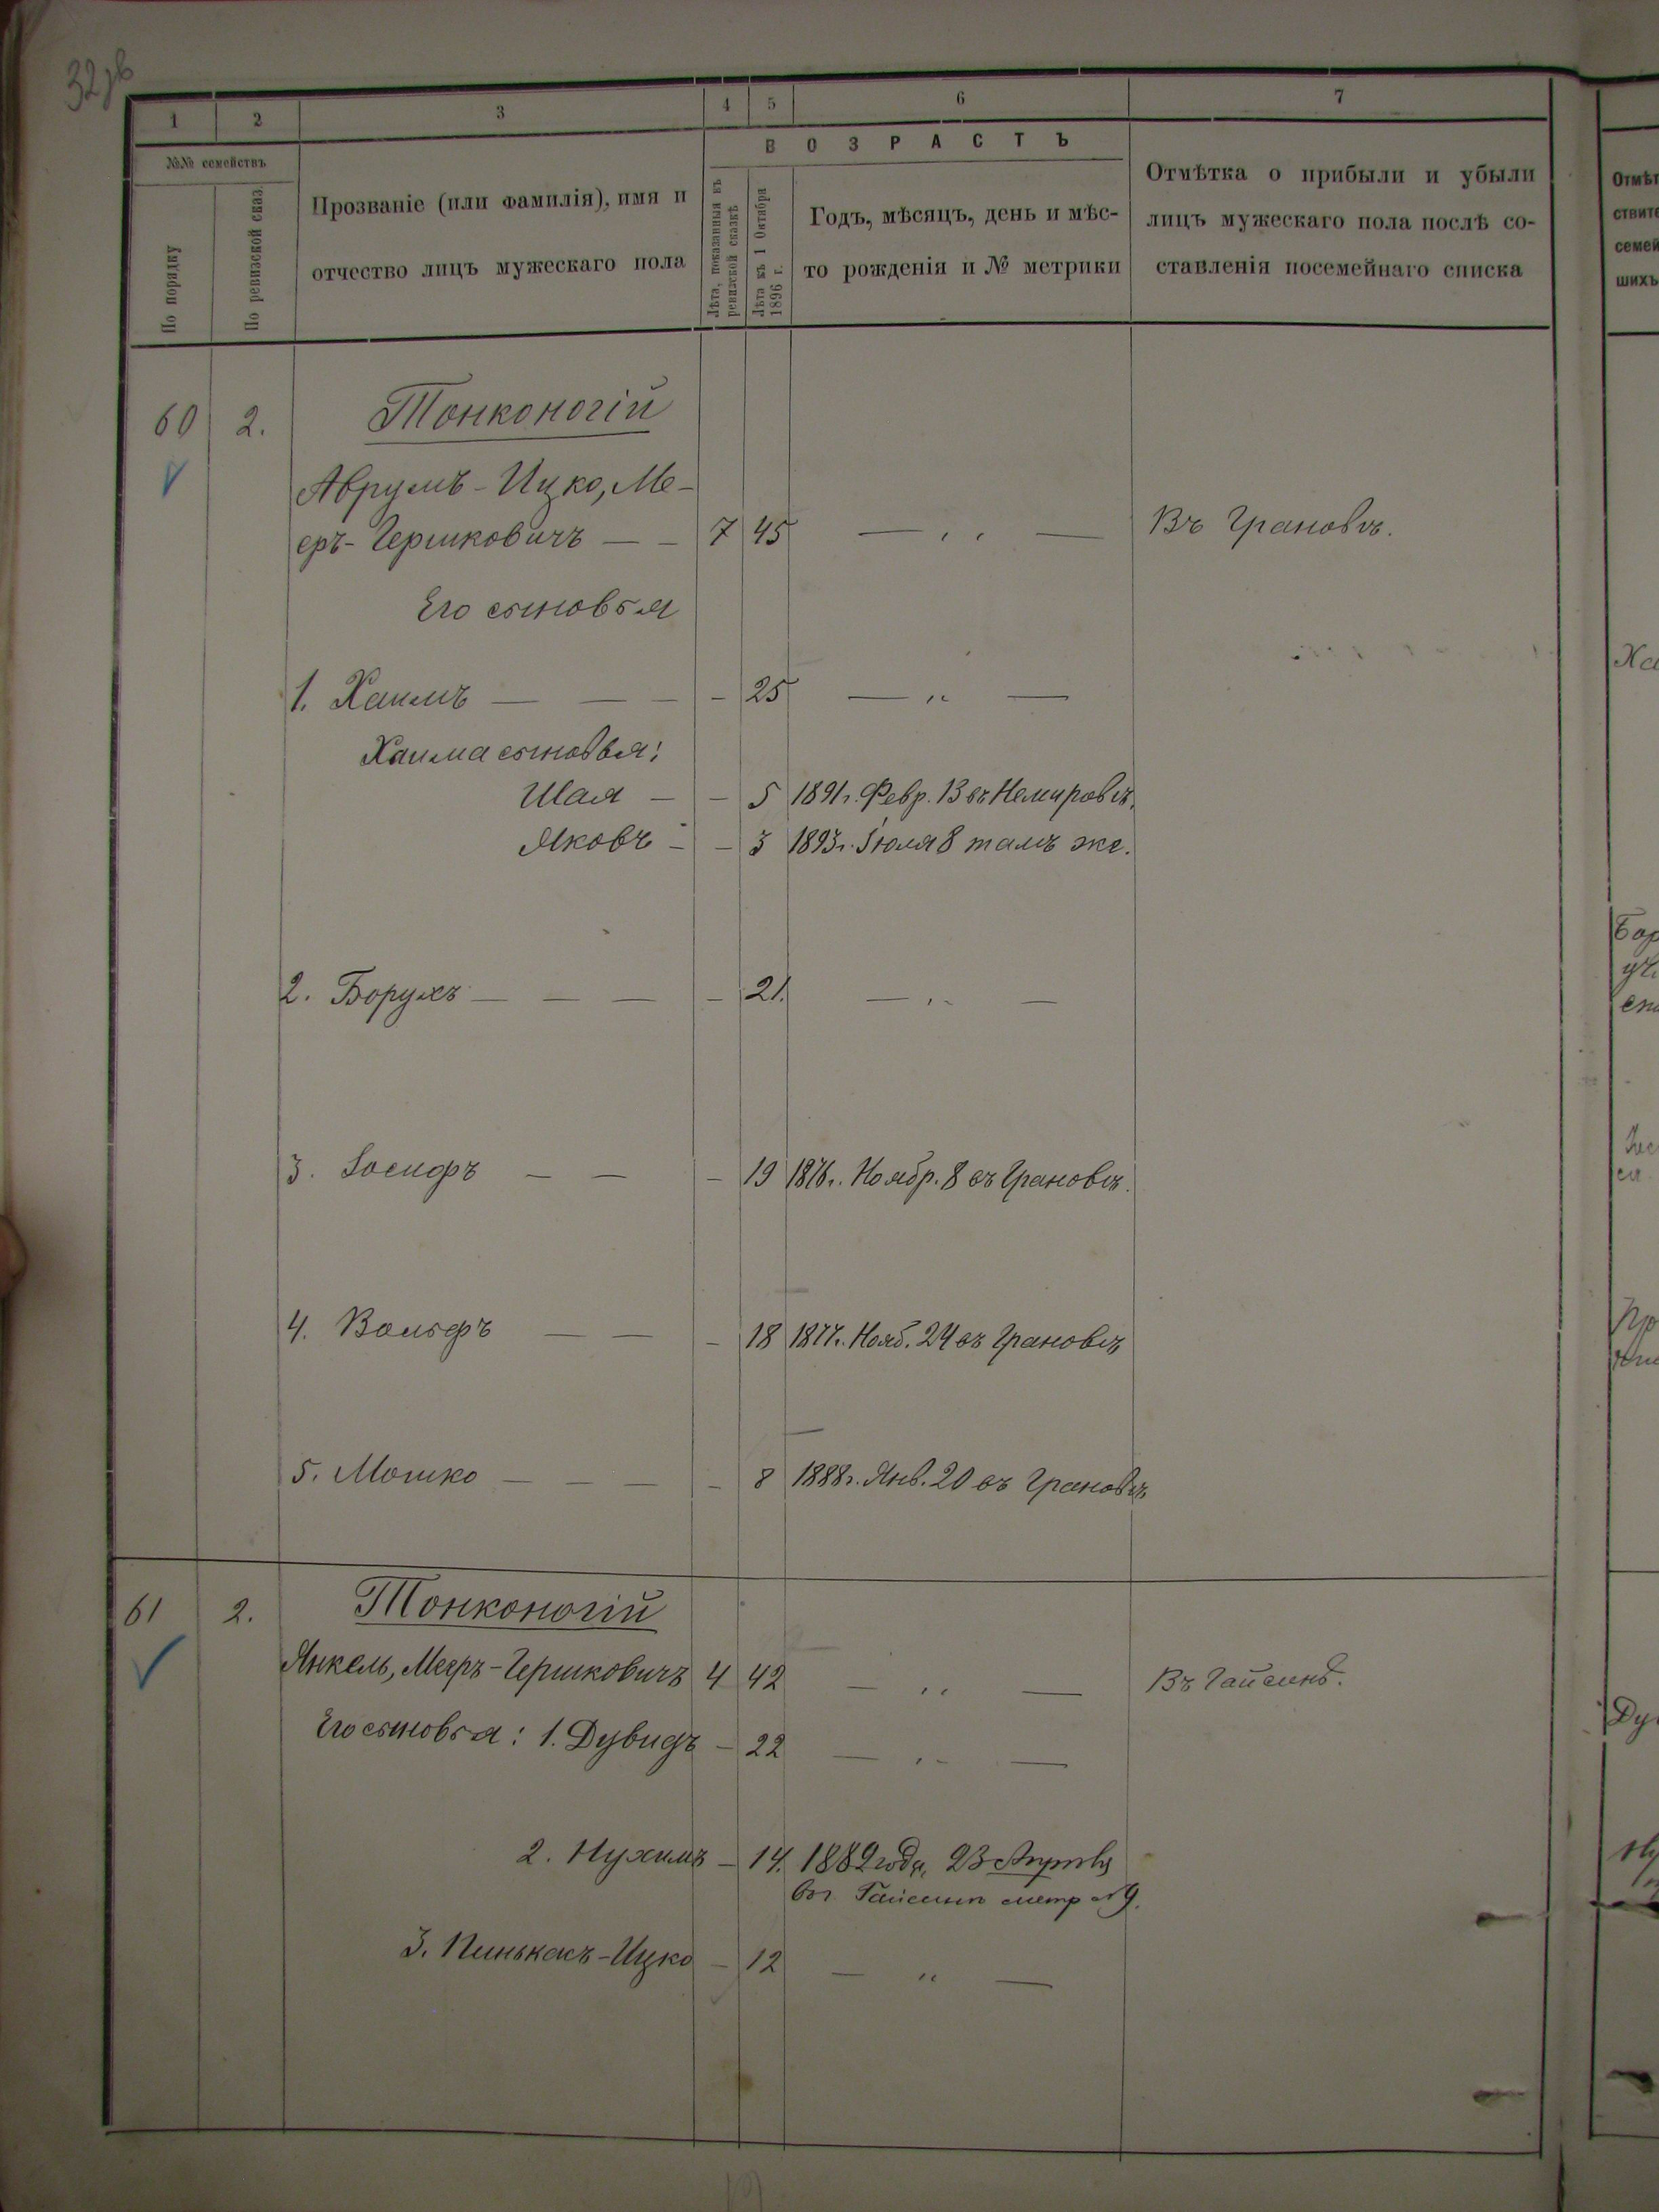 32 об
1 2 3 4 5 6 7
№№ семействъ
По порядку
По ревизской сказ.
Прозваніе (или фамилія), имя и
отчество лицъ мужескаго пола
ВОЗРАСТЪ
Лѣта, показанныя въ
ревизской сказкѣ
Лѣта къ 1 Октября
1896 г.
Годъ, мѣсяцъ, день и мѣс-
то рожденія и № метрики
Отмѣтка о прибыли и убыли
лицъ мужескаго пола послѣ со-
ставленія посемейнаго списка
60 2. Тонконогій
Аврумъ-Ицко, Ме-
еръ-Гершковичъ — – 7 45 — ,, — Въ Грановѣ.
Его сыновья
1. Хаимъ — — – – 25 — ,, —
Хаима сыновья:
Шая – – 5 1891 г. Февр. 13 въ Немировѣ.
Яковъ – – 3 1893 г. Іюля 8 тамъ же.
2. Борухъ — — — – 21. — ,, —
3. Іосифъ — — – 19 1876 г. Ноябр. 8 въ Грановѣ.
4. Вольфъ — — – 18 1877 г. Нояб. 24 въ Грановѣ
5. Мошко — — — – 8 1888 г. Янв. 20 въ Грановѣ
61 2. Тонконогій
Янкель, Мееръ-Гершковичъ 4 42 — ,, — Въ Гайсинѣ.
Его сыновья: 1. Дувидъ – 22 — ,, —
2. Нухимъ – 14. 1882 года, 23 Апрѣля
въ г. Гайсинѣ метр № 9.
3. Пинькасъ-Ицко – 12 — ,, —